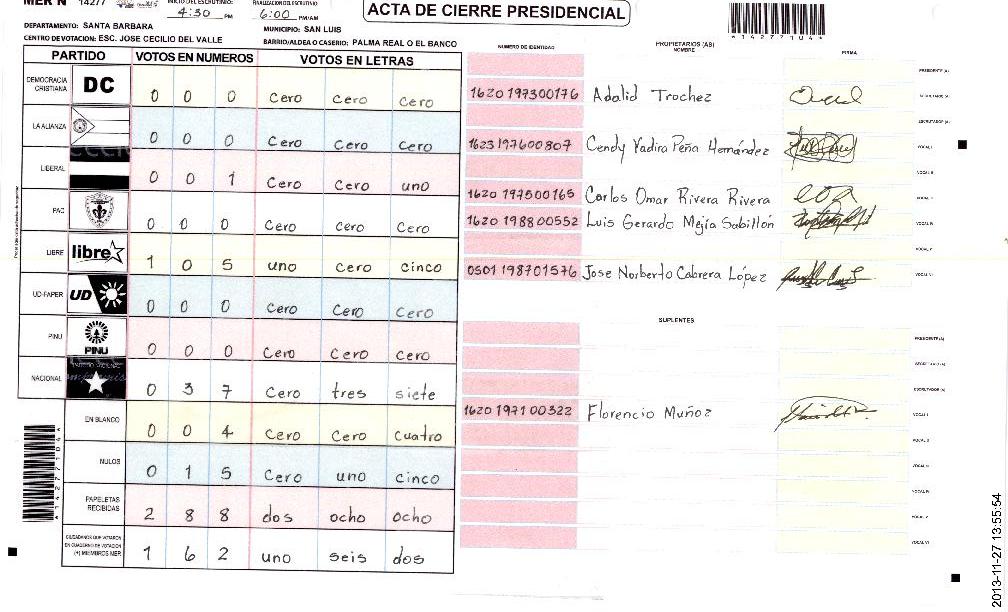 MER N 14277 INICIO DEL ESCRUTINIO: 4:30 PM FINALIZACION DEL ESCRUTINIO 6:00 PM/AM
ACTA DE CIERRE PRESIDENCIAL
*14277104*
DEPARTAMENTO: SANTA BARBARA MUNICIPIO: SAN LUIS
CENTRO DE VOTACION: ESC. JOSE CECILIO DEL VALLE BARRIO/ALDEA O CASERIO: PALMA REAL O EL BANCO
PARTIDO VOTOS EN NUMEROS VOTOS EN LETRAS
DEMOCRACIA CRISTIANA DC 0 0 0 Cero cero cero
LA ALIANZA 0 0 0 Cero Cero Cero
LIBERAL 0 0 1 Cero Cero uno
PAC 0 0 0 Cero Cero Cero
LIBRE libre 1 0 5 uno cero cinco
UD-FAPER UD 0 0 0 Cero Cero Cero
PINU PINU 0 0 0 Cero Cero Cero
NACIONAL 0 3 7 Cero tres siete
EN BLANCO 0 0 4 Cero Cero cuatro
NULOS 0 1 5 Cero uno cinco
PAPELETAS RECIBIDAS 2 8 8 dos ocho ocho
CIUDADANOS QUE VOTARON EN CUADERNO DE VOTACION (+) MIEMBROS MER 1 6 2 uno seis dos
*14277104*
NUMERO DE IDENTIDAD PROPIETARIOS (AS) NOMBRE FIRMA
PRESIDENTE (A)
1620 197300176 Adalid Trochez SECRETARIO (A)
ESCRUTADOR (A)
1623 197600807 Cendy Yadira Peña Hernández VOCAL I
VOCAL II
1620 197500165 Carlos Omar Rivera Rivera VOCAL III
1620 198800552 Luis Gerardo Mejía Sabillón VOCAL IV
VOCAL V
0501 198701576 Jose Norberto Cabrera López VOCAL VI
SUPLENTES
PRESIDENTE (A)
SECRETARIO (A)
ESCRUTADOR (A)
1620 1971 00322 Florencio Muñoz VOCAL I
VOCAL II
VOCAL III
VOCAL IV
VOCAL V
VOCAL VI
2013-11-27 13:55:54